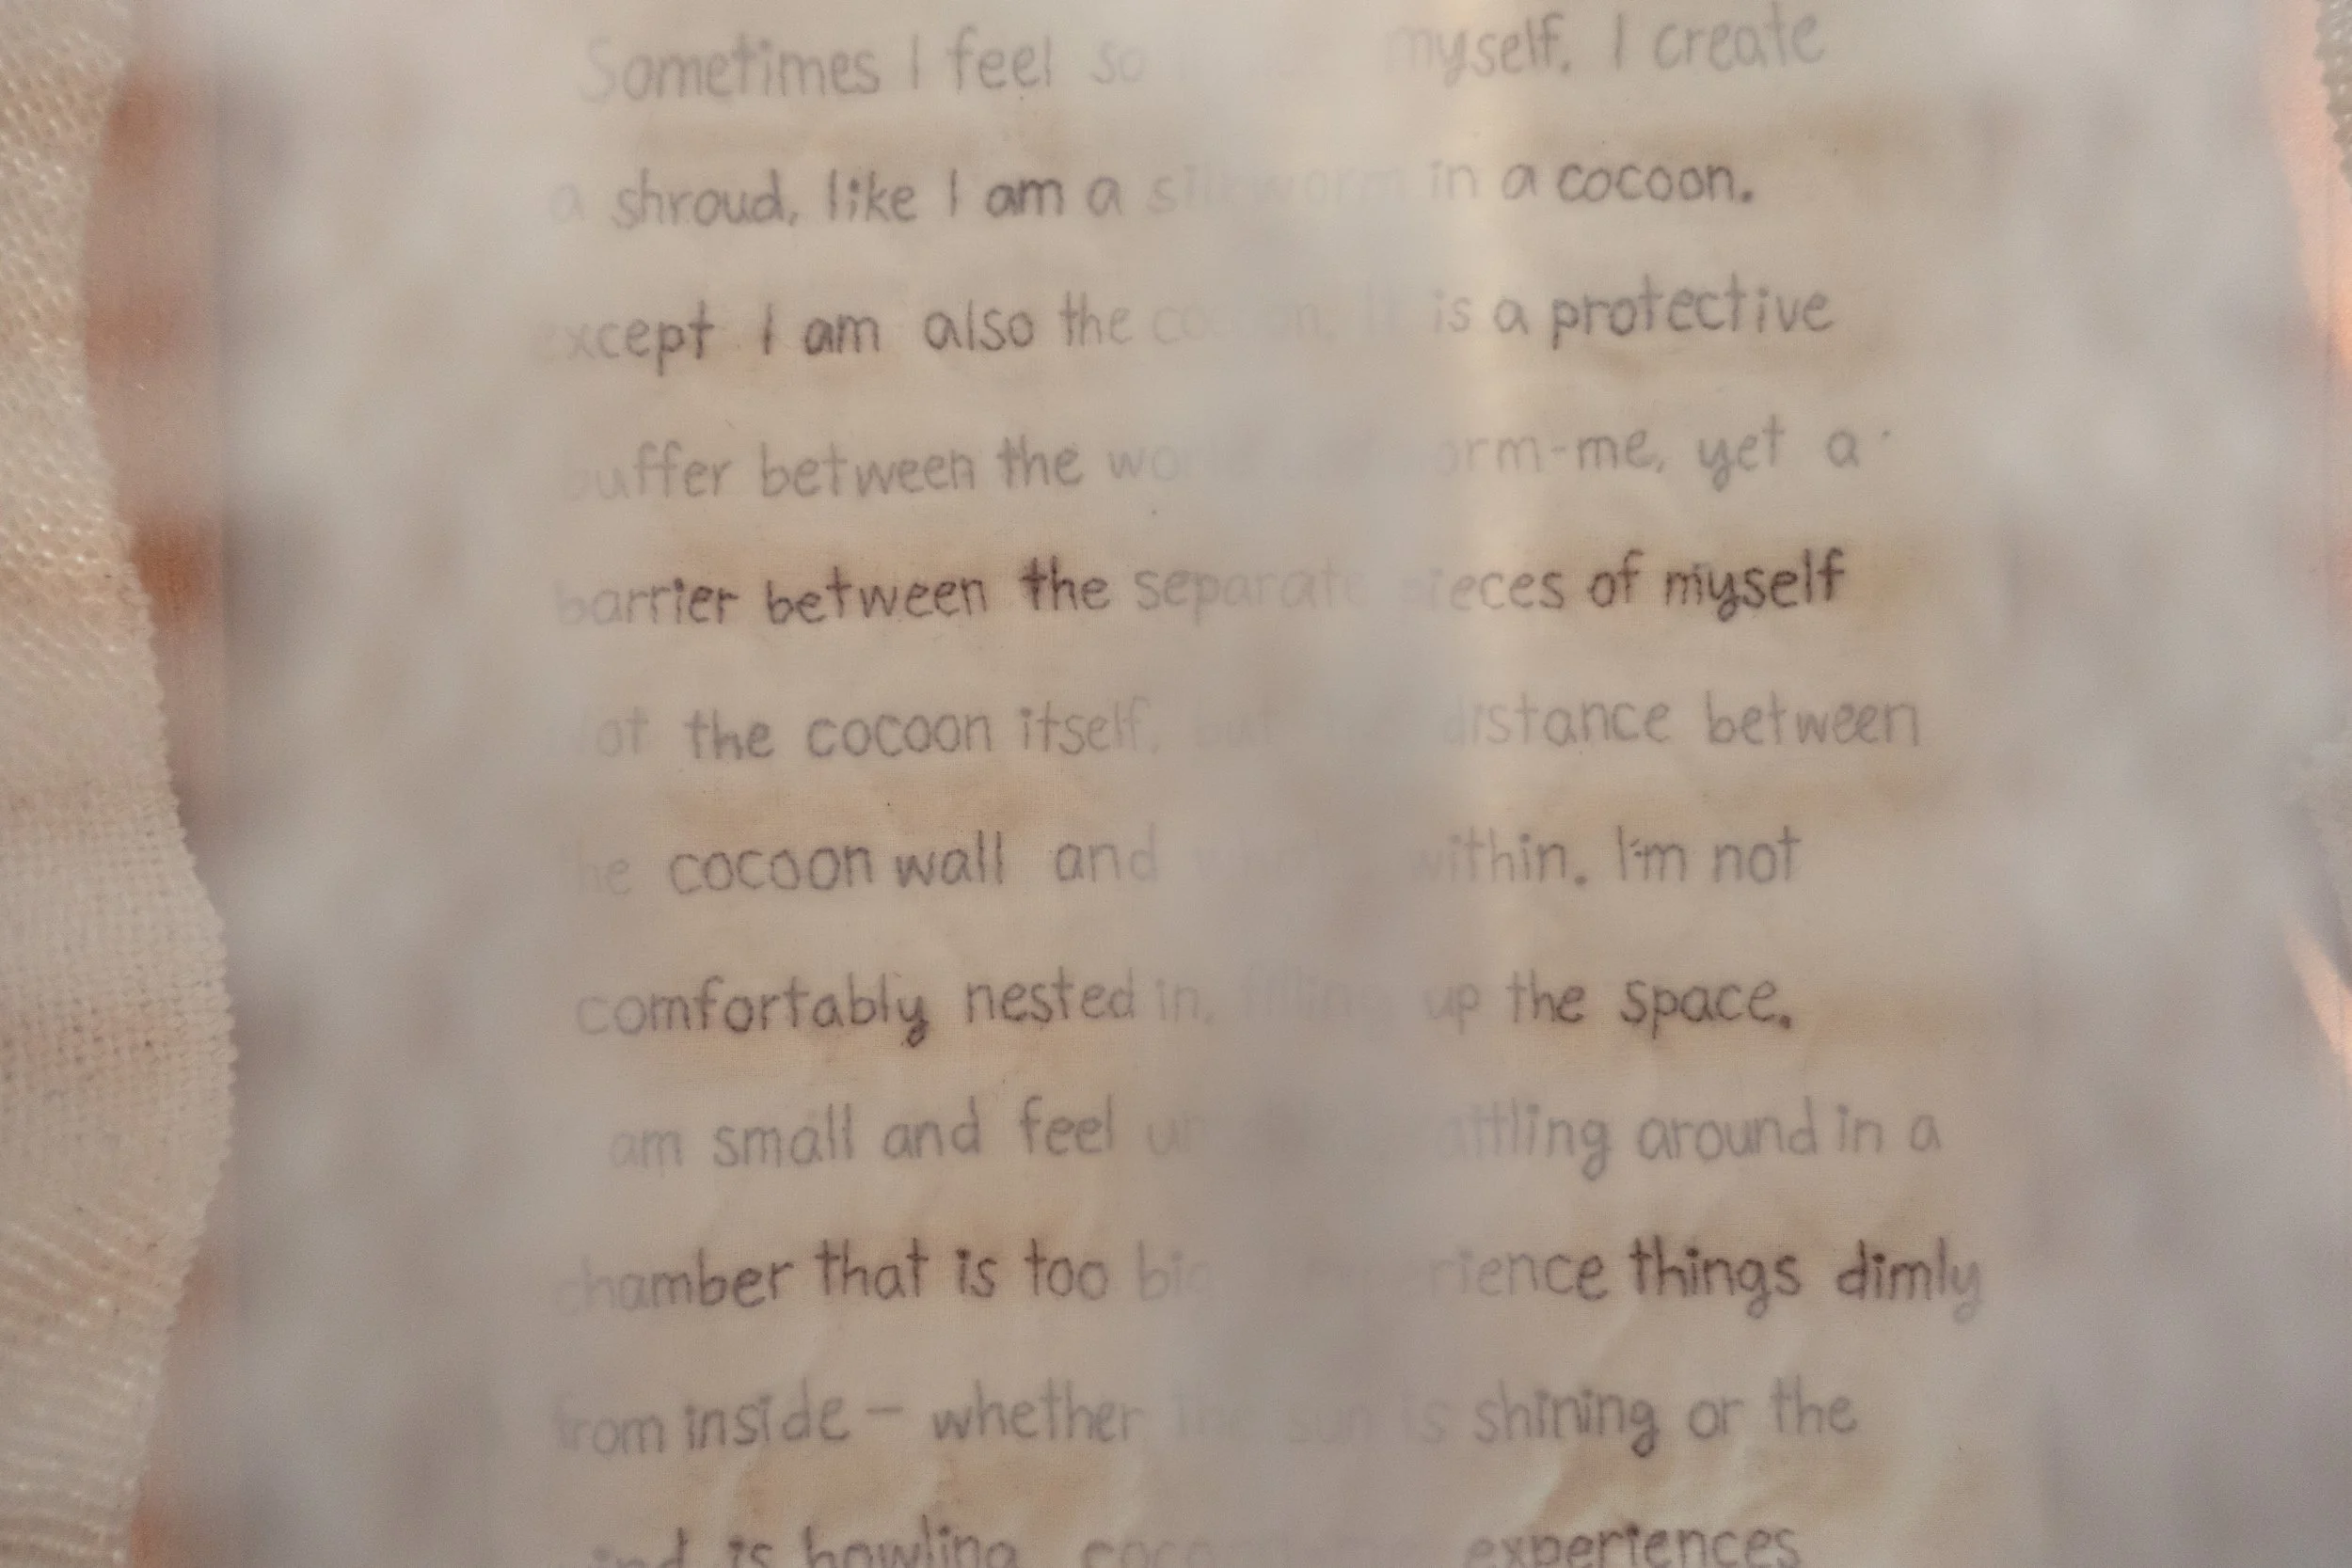 Sometimes I feel so myself. I create
a shroud, like I am a silkworm in a cocoon.
except I am also the cocoon. It is a protective
buffer between the worm-me, yet a
barrier between the separate pieces of myself
Not the cocoon itself, but the distance between
the cocoon wall and what's within. I'm not
comfortably nested in, filling up the space.
am small and feel rattling around in a
chamber that is too big experience things dimly
from inside – whether the sun is shining or the
wind is howling, experiences